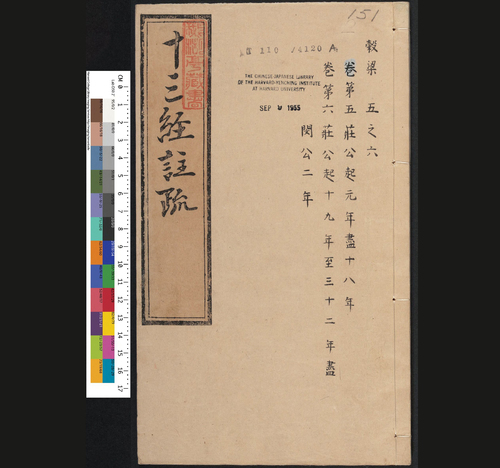 151
穀梁 五之六
卷第五莊公起元年盡十八年
卷第六莊公起十九年至三十二年盡
閔公二年
110 /4120 A
THE CHINESE-JAPANESE LIBRARY
OF THE HARVARD-YENCHING INSTITUTE
AT HARVARD UNIVERSITY
SEP 9 1955
十三經註疏
CM 0 1 2 3 4 5 6 7 8 9 10 11 12 13 14 15 16 17